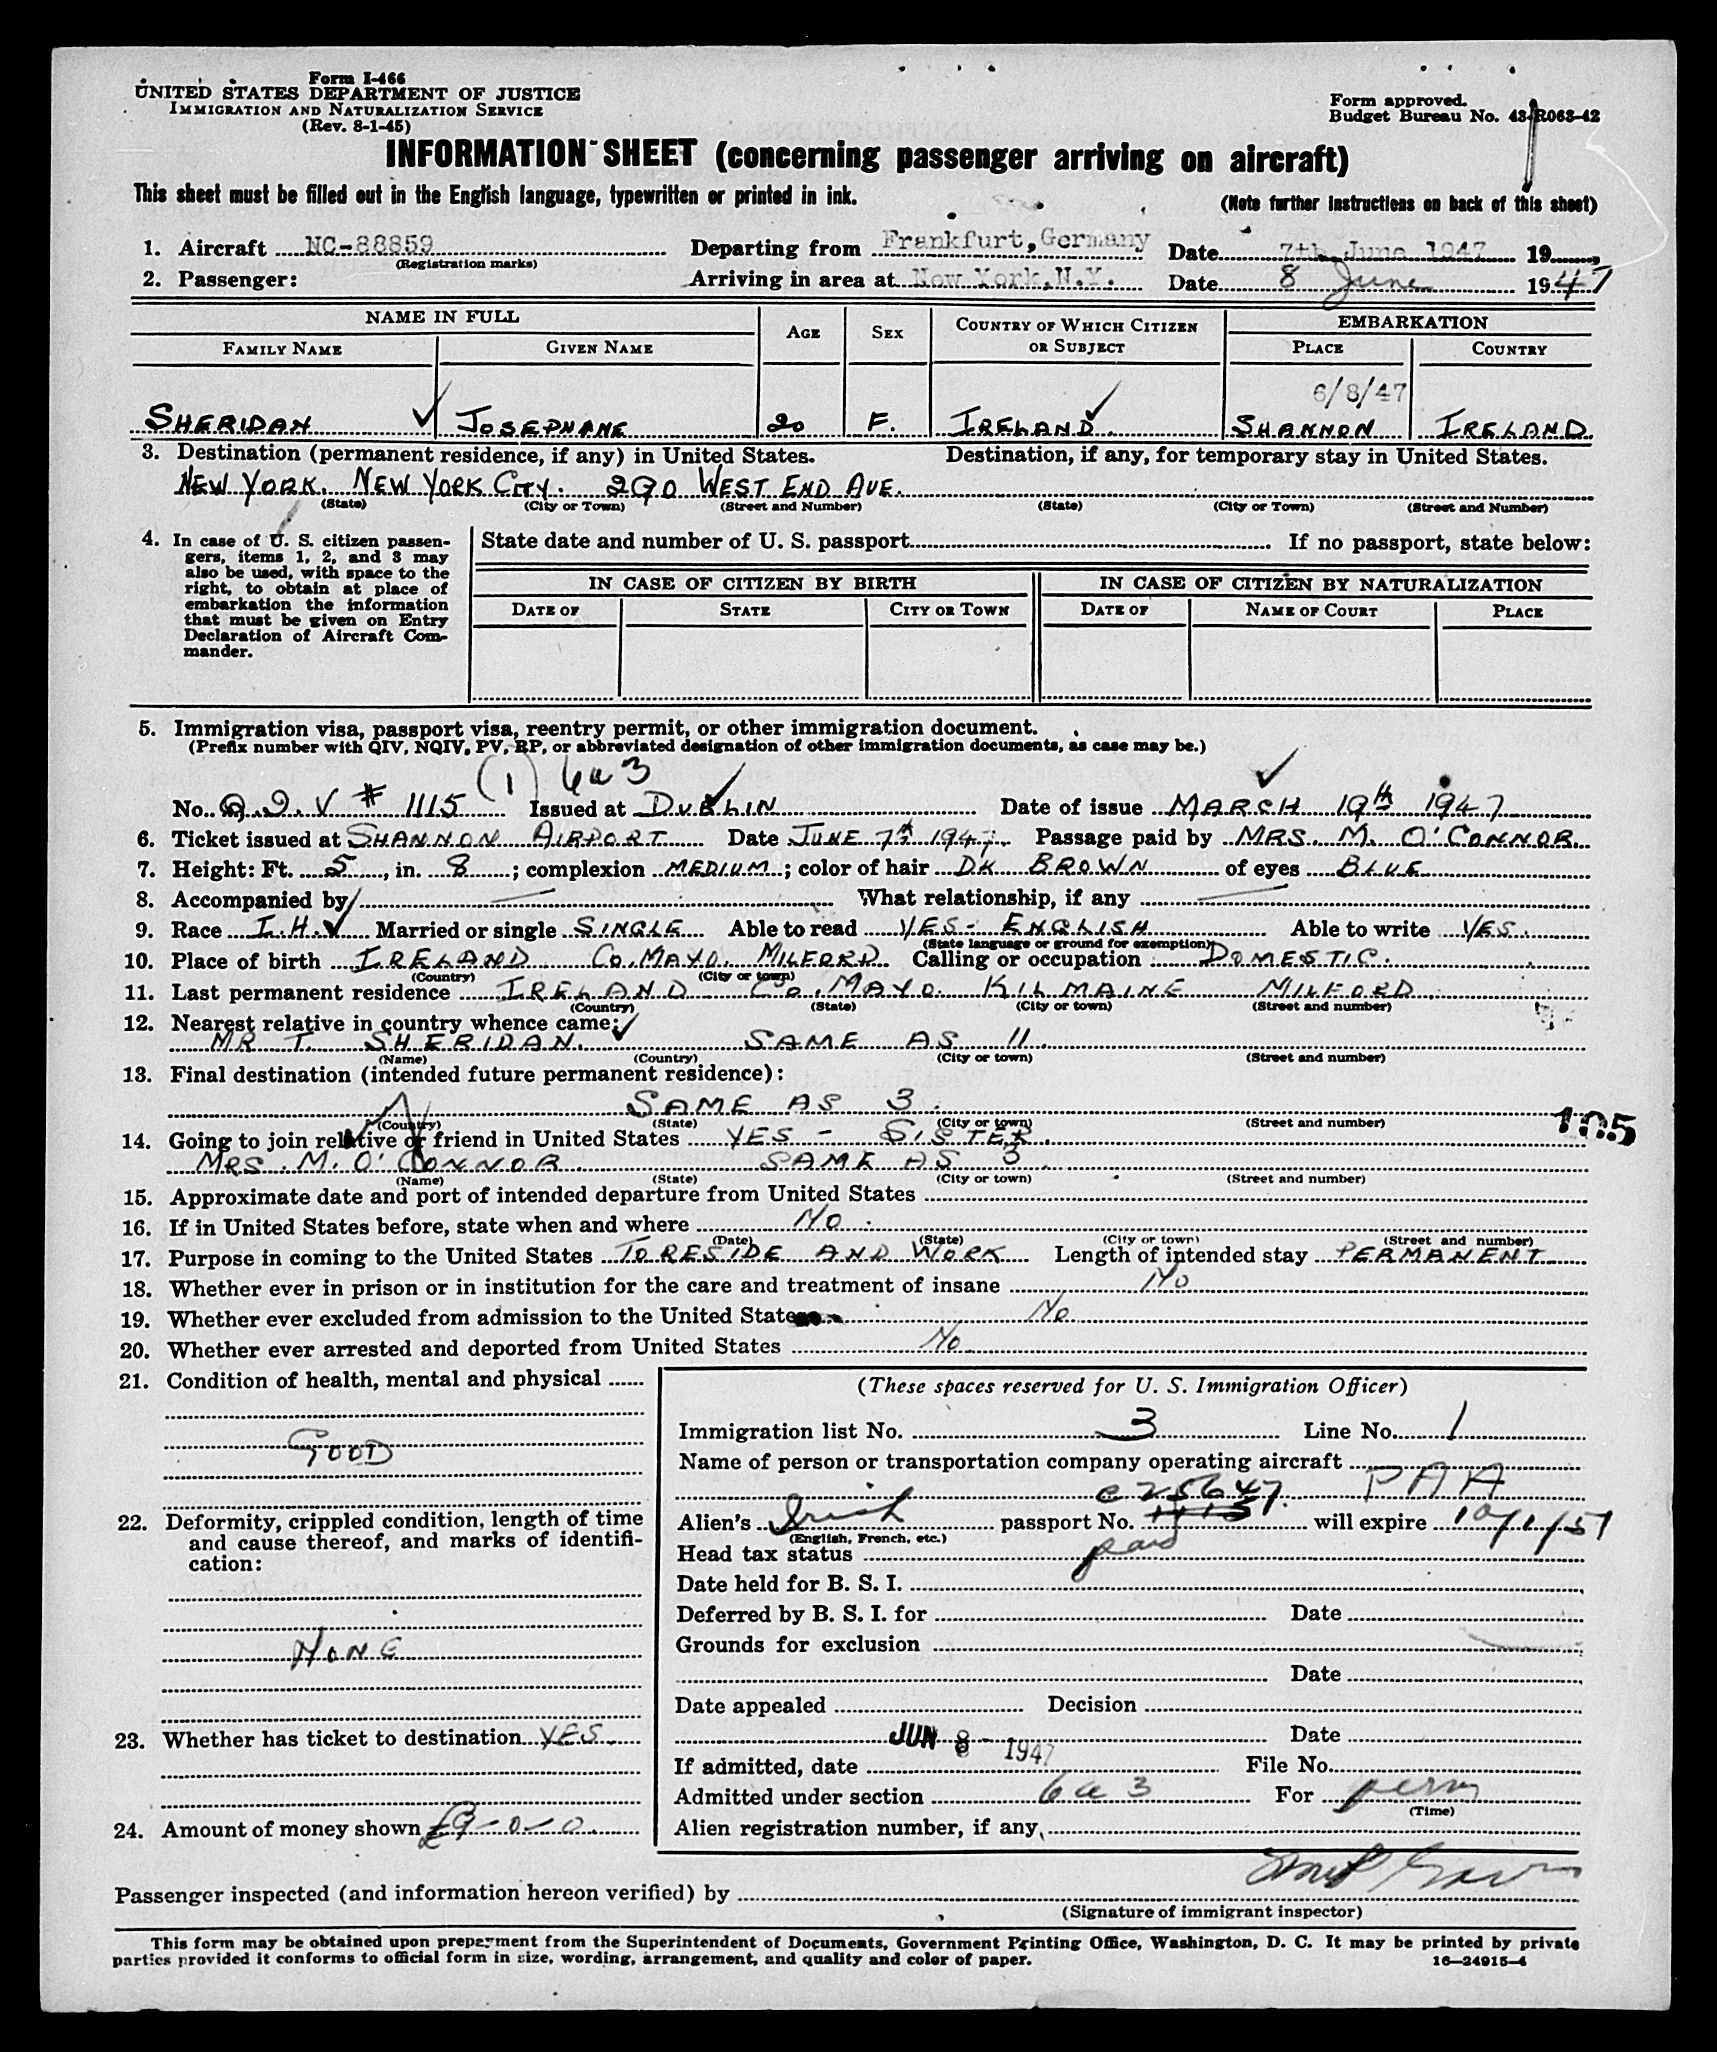 Form I-466
UNITED STATES DEPARTMENT OF JUSTICE
IMMIGRATION AND NATURALIZATION SERVICE
(Rev. 8-1-45)
Form approved.
Budget Bureau No. 43-R063-42
INFORMATION SHEET (concerning passenger arriving on aircraft)
This sheet must be filled out in the English language, typewritten or printed in ink.
(Note further instructions on back of this sheet)
1. Aircraft NC-88859 Departing from Frankfurt, Germany Date 7th June 1947 19
(Registration marks)
2. Passenger: Arriving in area at New York, N.Y. Date 8 June 1947
NAME IN FULL AGE SEX COUNTRY OF WHICH CITIZEN OR SUBJECT EMBARKATION
FAMILY NAME GIVEN NAME PLACE COUNTRY
6/8/47
SHERIDAN JOSEPHANE 20 F. IRELAND SHANNON IRELAND
3. Destination (permanent residence, if any) in United States. Destination, if any, for temporary stay in United States.
NEW YORK. NEW YORK CITY. 290 WEST END AVE.
(State) (City or Town) (Street and Number) (State) (City or Town) (Street and Number)
4. In case of U. S. citizen passengers, items 1, 2, and 3 may also be used, with space to the right, to obtain at place of embarkation the information that must be given on Entry Declaration of Aircraft Commander.
State date and number of U. S. passport If no passport, state below:
IN CASE OF CITIZEN BY BIRTH IN CASE OF CITIZEN BY NATURALIZATION
DATE OF STATE CITY OR TOWN DATE OF NAME OF COURT PLACE
5. Immigration visa, passport visa, reentry permit, or other immigration document.
(Prefix number with QIV, NQIV, PV, RP, or abbreviated designation of other immigration documents, as case may be.)
(1) 6a3
No. Q.I.V # 1115 Issued at DUBLIN Date of issue MARCH 19th 1947
6. Ticket issued at SHANNON AIRPORT Date JUNE 7th 1947. Passage paid by MRS. M. O'CONNOR.
7. Height: Ft. 5, in. 8; complexion MEDIUM; color of hair DK BROWN of eyes BLUE
8. Accompanied by — What relationship, if any —
9. Race I.H. Married or single SINGLE Able to read YES - ENGLISH Able to write YES.
(State language or ground for exemption)
10. Place of birth IRELAND CO. MAYO. MILFORD. Calling or occupation DOMESTIC.
(Country) (City or town)
11. Last permanent residence IRELAND CO. MAYO. KILMAINE MILFORD
(Country) (State) (City or town) (Street and number)
12. Nearest relative in country whence came:
MR T. SHERIDAN. SAME AS 11.
(Name) (Country) (City or town) (Street and number)
13. Final destination (intended future permanent residence):
SAME AS 3.
(Country) (State) (City or town) (Street and number)
105
14. Going to join relative or friend in United States YES - SISTER.
MRS. M. O'CONNOR. SAME AS 3.
(Name) (State) (City or town) (Street and number)
15. Approximate date and port of intended departure from United States
16. If in United States before, state when and where NO.
(Date) (State) (City or town) (Street and number)
17. Purpose in coming to the United States TO RESIDE AND WORK Length of intended stay PERMANENT
18. Whether ever in prison or in institution for the care and treatment of insane No
19. Whether ever excluded from admission to the United States No
20. Whether ever arrested and deported from United States No
21. Condition of health, mental and physical
GOOD
22. Deformity, crippled condition, length of time and cause thereof, and marks of identification:
NONE
23. Whether has ticket to destination YES.
24. Amount of money shown £9-0-0.
(These spaces reserved for U. S. Immigration Officer)
Immigration list No. 3 Line No. 1
Name of person or transportation company operating aircraft PAA
c 25647.
Alien's Irish passport No. 1115 will expire 10/1/51
(English, French, etc.)
Head tax status paid
Date held for B. S. I.
Deferred by B. S. I. for Date
Grounds for exclusion
Date
Date appealed Decision
Date
JUN 8 - 1947
If admitted, date File No.
Admitted under section 6a3 For perm
(Time)
Alien registration number, if any,
Passenger inspected (and information hereon verified) by
(Signature of immigrant inspector)
This form may be obtained upon prepayment from the Superintendent of Documents, Government Printing Office, Washington, D. C. It may be printed by private
parties provided it conforms to official form in size, wording, arrangement, and quality and color of paper. 16—24915-4